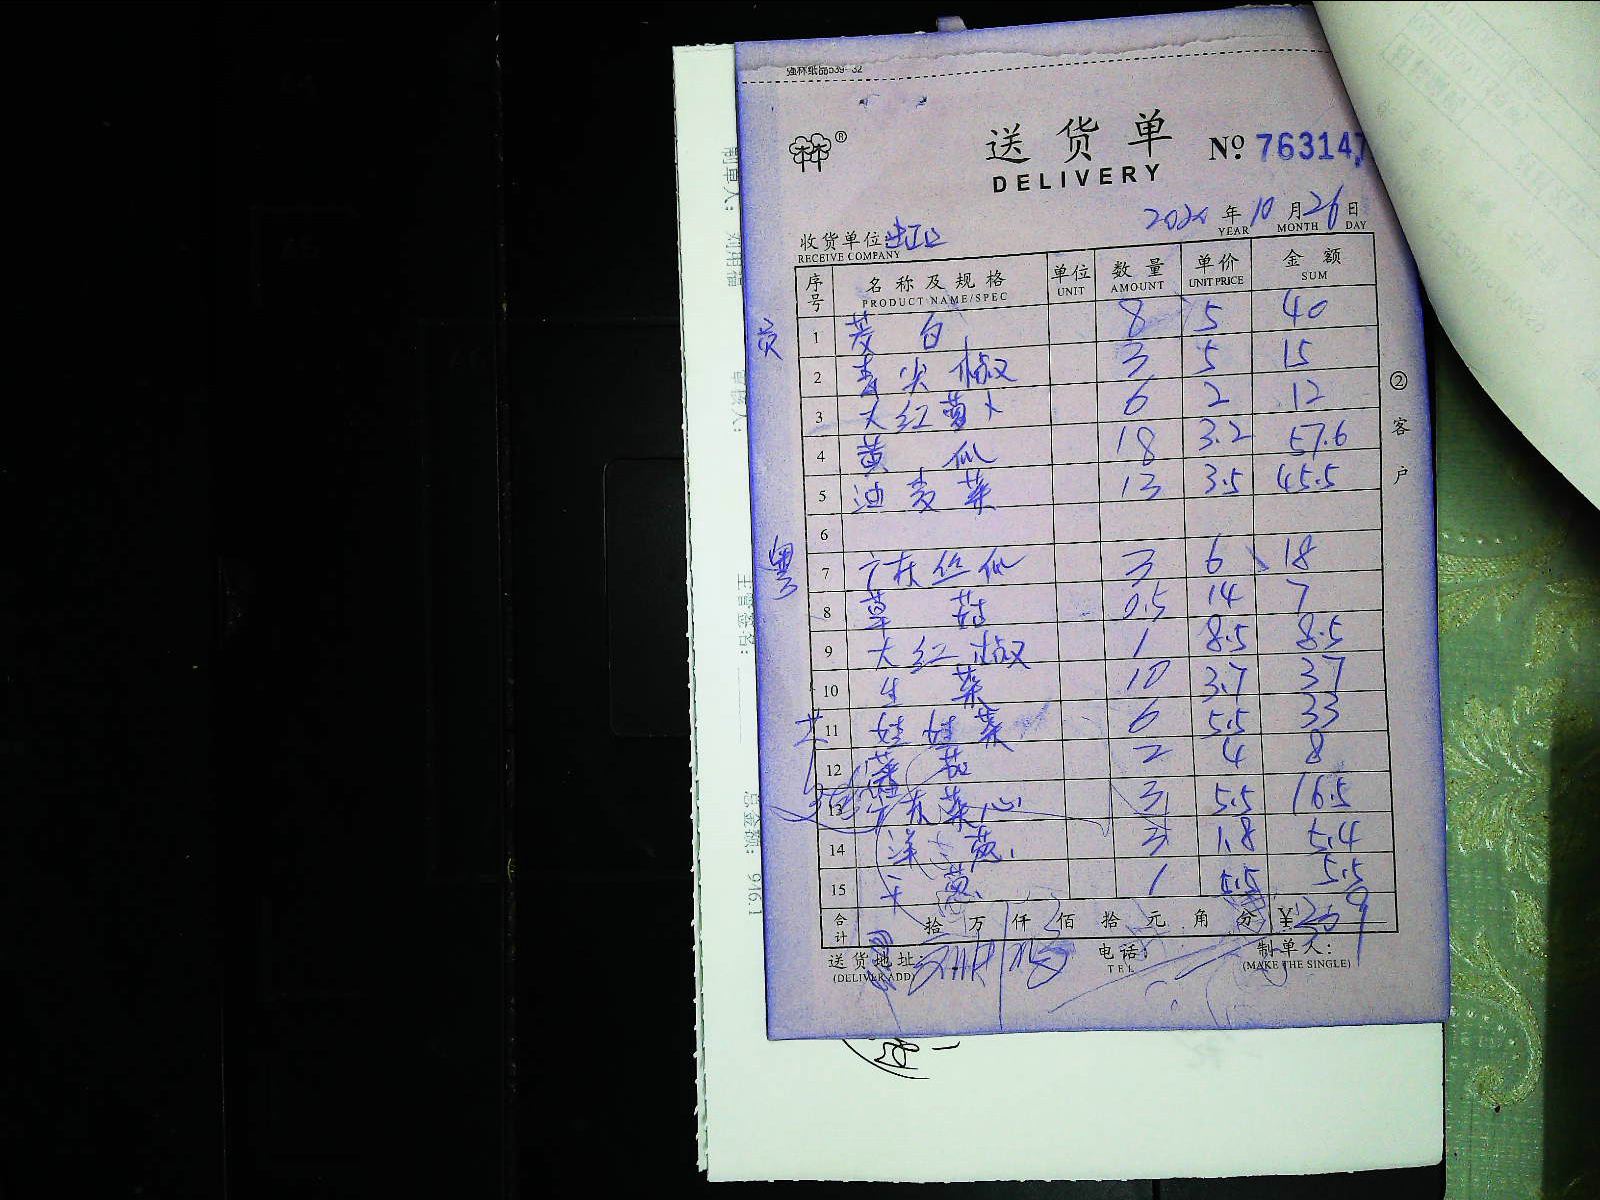 强林纸品539-32
送货单
DELIVERY
№ 763147
年 10 月 26 日
YEAR MONTH DAY
收货单位:
RECEIVE COMPANY
序号 名称及规格 单位 数量 单价 金额
PRODUCT NAME/SPEC UNIT AMOUNT UNIT PRICE SUM
1 茭白 8 5 40
2 青尖椒 3 5 15
3 大红萝卜 6 2 12
4 黄瓜 18 3.2 57.6
5 油麦菜 13 3.5 45.5
6
粤
7 广东丝瓜 3 6 18
8 草菇 0.5 14 7
9 大红椒 1 8.5 8.5
10 生菜 10 3.7 37
11 娃娃菜 6 5.5 33
12 茄 2 4 8
13 广东菜心 3 5.5 16.5
14 葱 3 1.8 5.4
15 葱 1 5.5 5.5
合计 拾 万 仟 佰 拾 元 角 分 ¥ 309
送货地址: 电话: 制单人:
(DELIVER ADD) TEL (MAKE THE SINGLE)
② 客户
制单人:
审核人:
主管签名:
总金额: 946.1